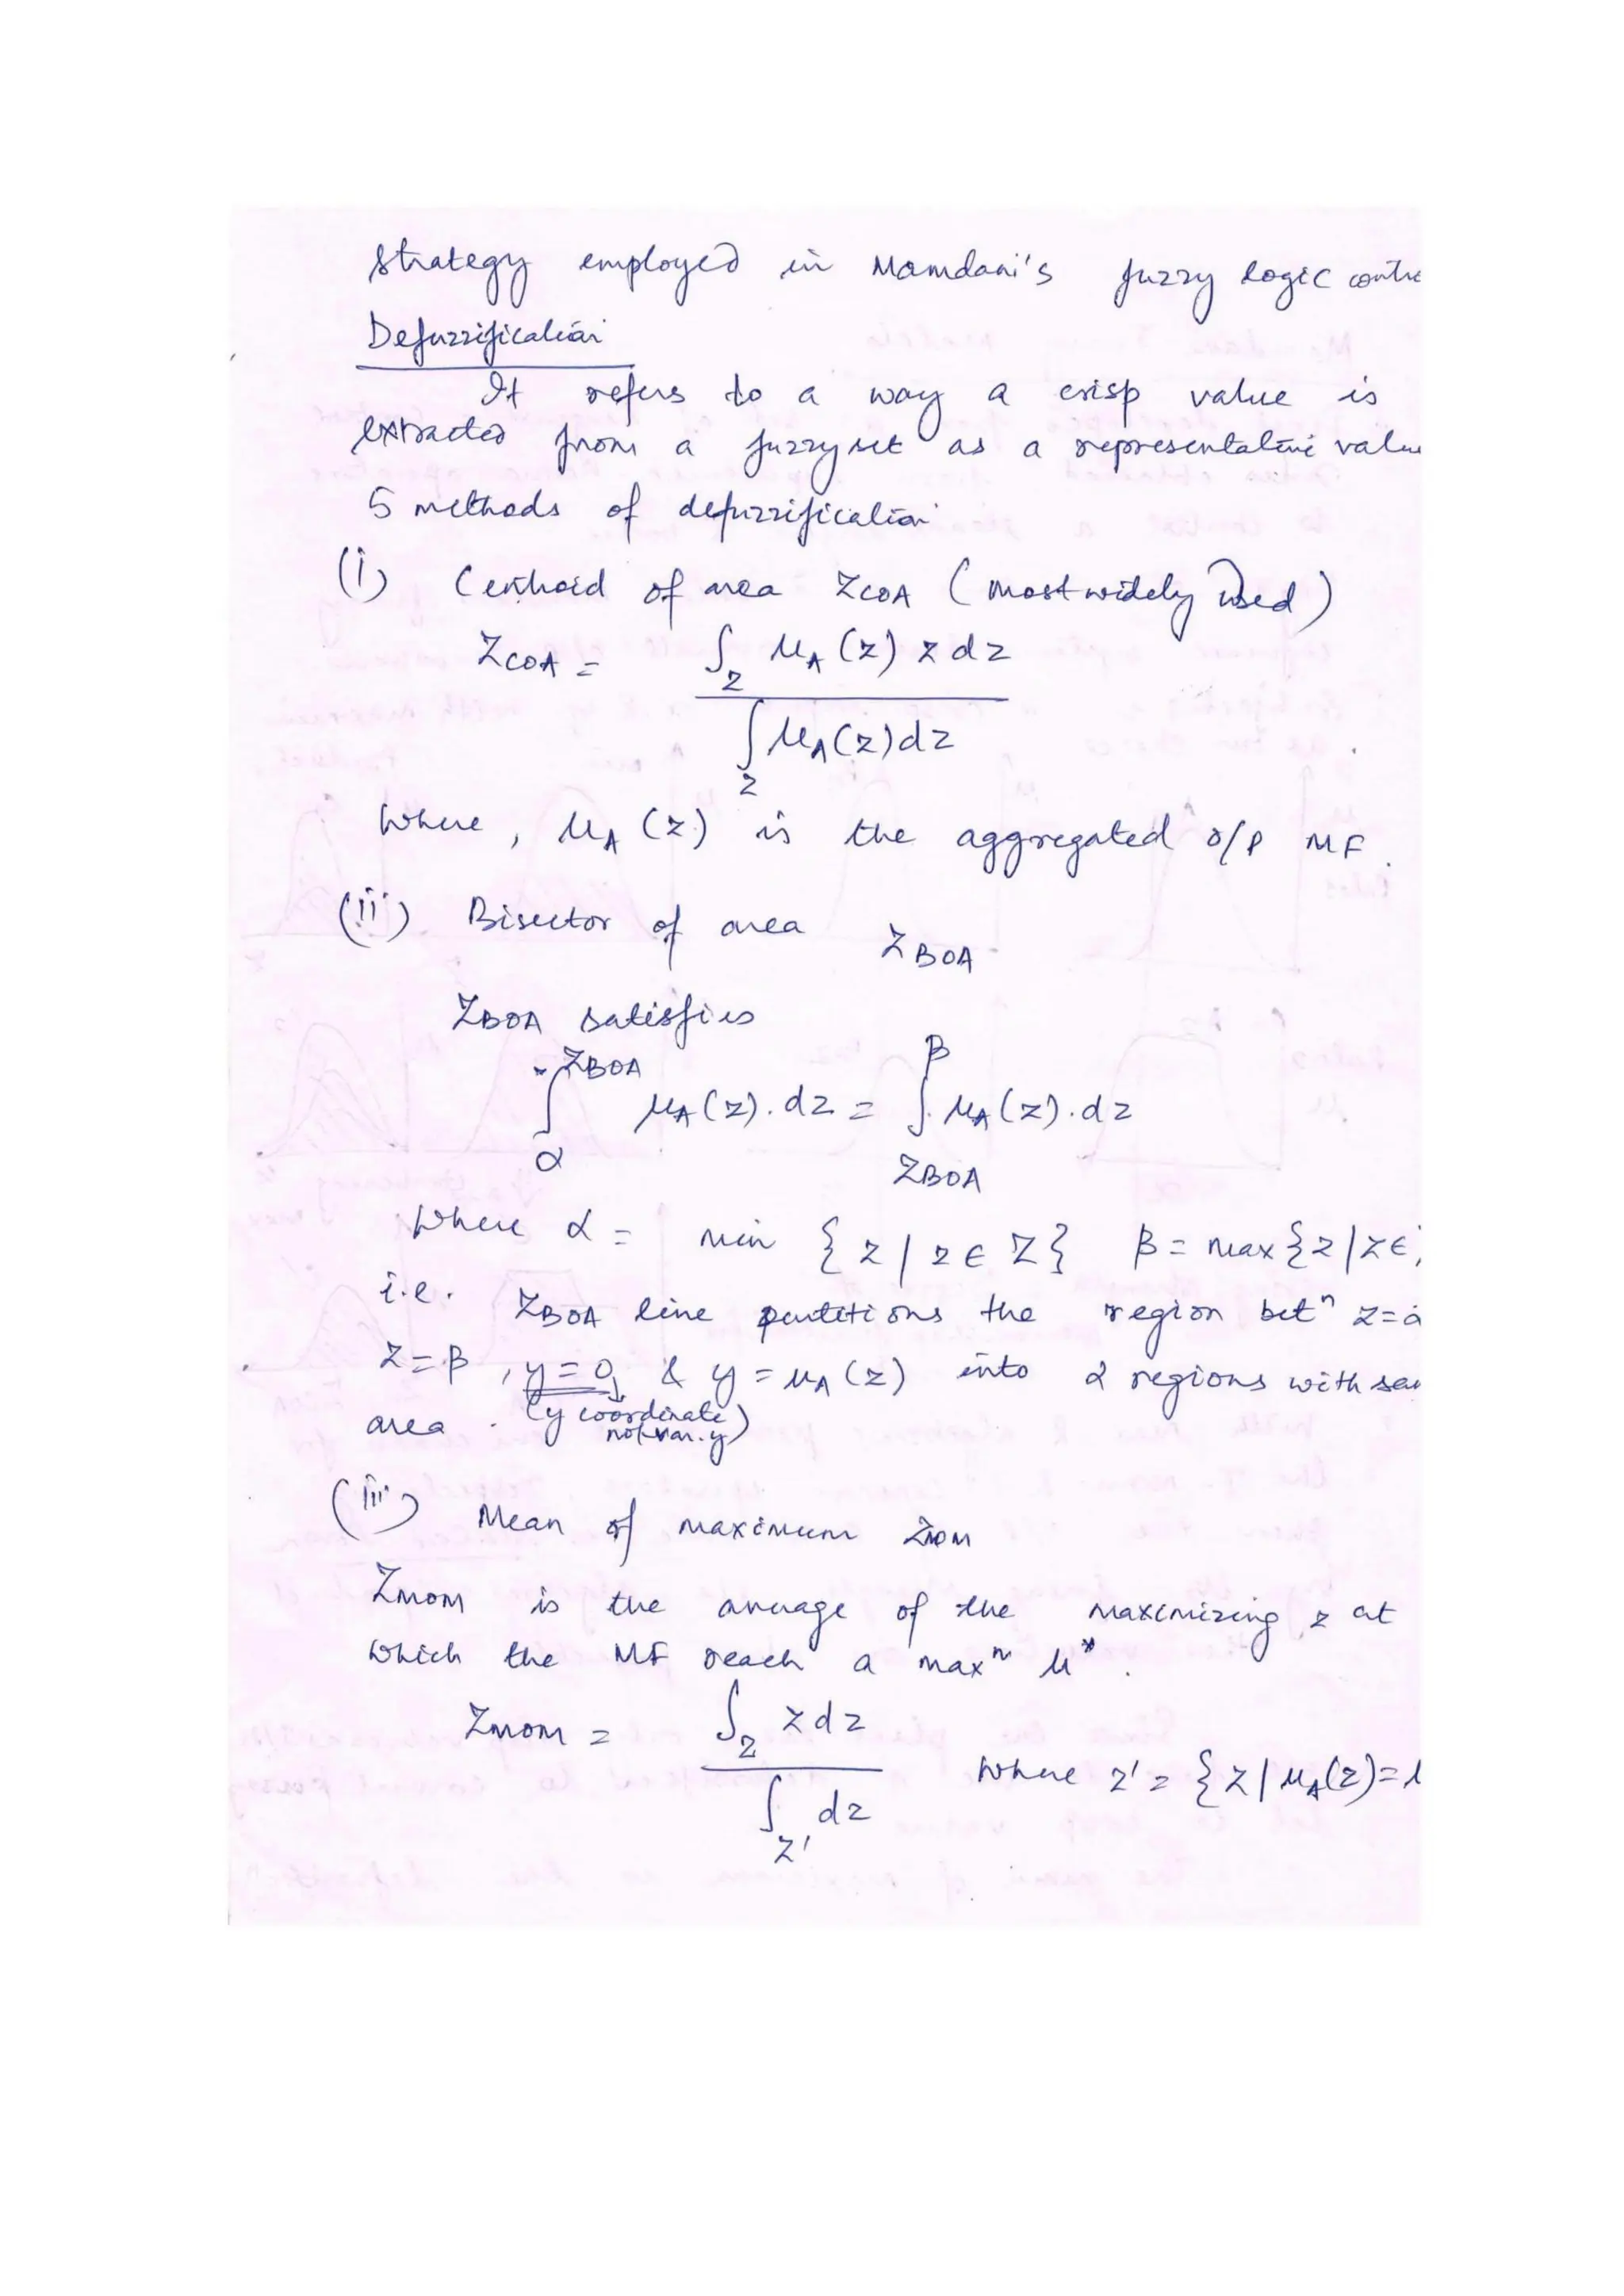 strategy employed in Mamdani's fuzzy logic contr
Defuzzification
It refers to a way a crisp value is
extracted from a fuzzy set as a representative valu
5 methods of defuzzification
(i) Centroid of area Z_COA (most widely used)
Z_COA = ∫_Z μ_A(z) z dz
∫_Z μ_A(z) dz
Where, μ_A(z) is the aggregated o/p MF.
(ii) Bisector of area Z_BOA
Z_BOA satisfies
∫_α^{Z_BOA} μ_A(z).dz = ∫_{Z_BOA}^β μ_A(z).dz
Where α = min {z | z ∈ Z} β = max {z | z ∈
i.e. Z_BOA line partitions the region betⁿ z=α
z=β, y=0 & y=μ_A(z) into 2 regions with sa
area. (y coordinate
not var. y)
(iii) Mean of maximum Z_MOM
Z_MOM is the average of the maximizing z at
which the MF reach a maxᵐ μ*.
Z_MOM = ∫_Z z dz
∫_Z' dz where z' = {z | μ_A(z)=